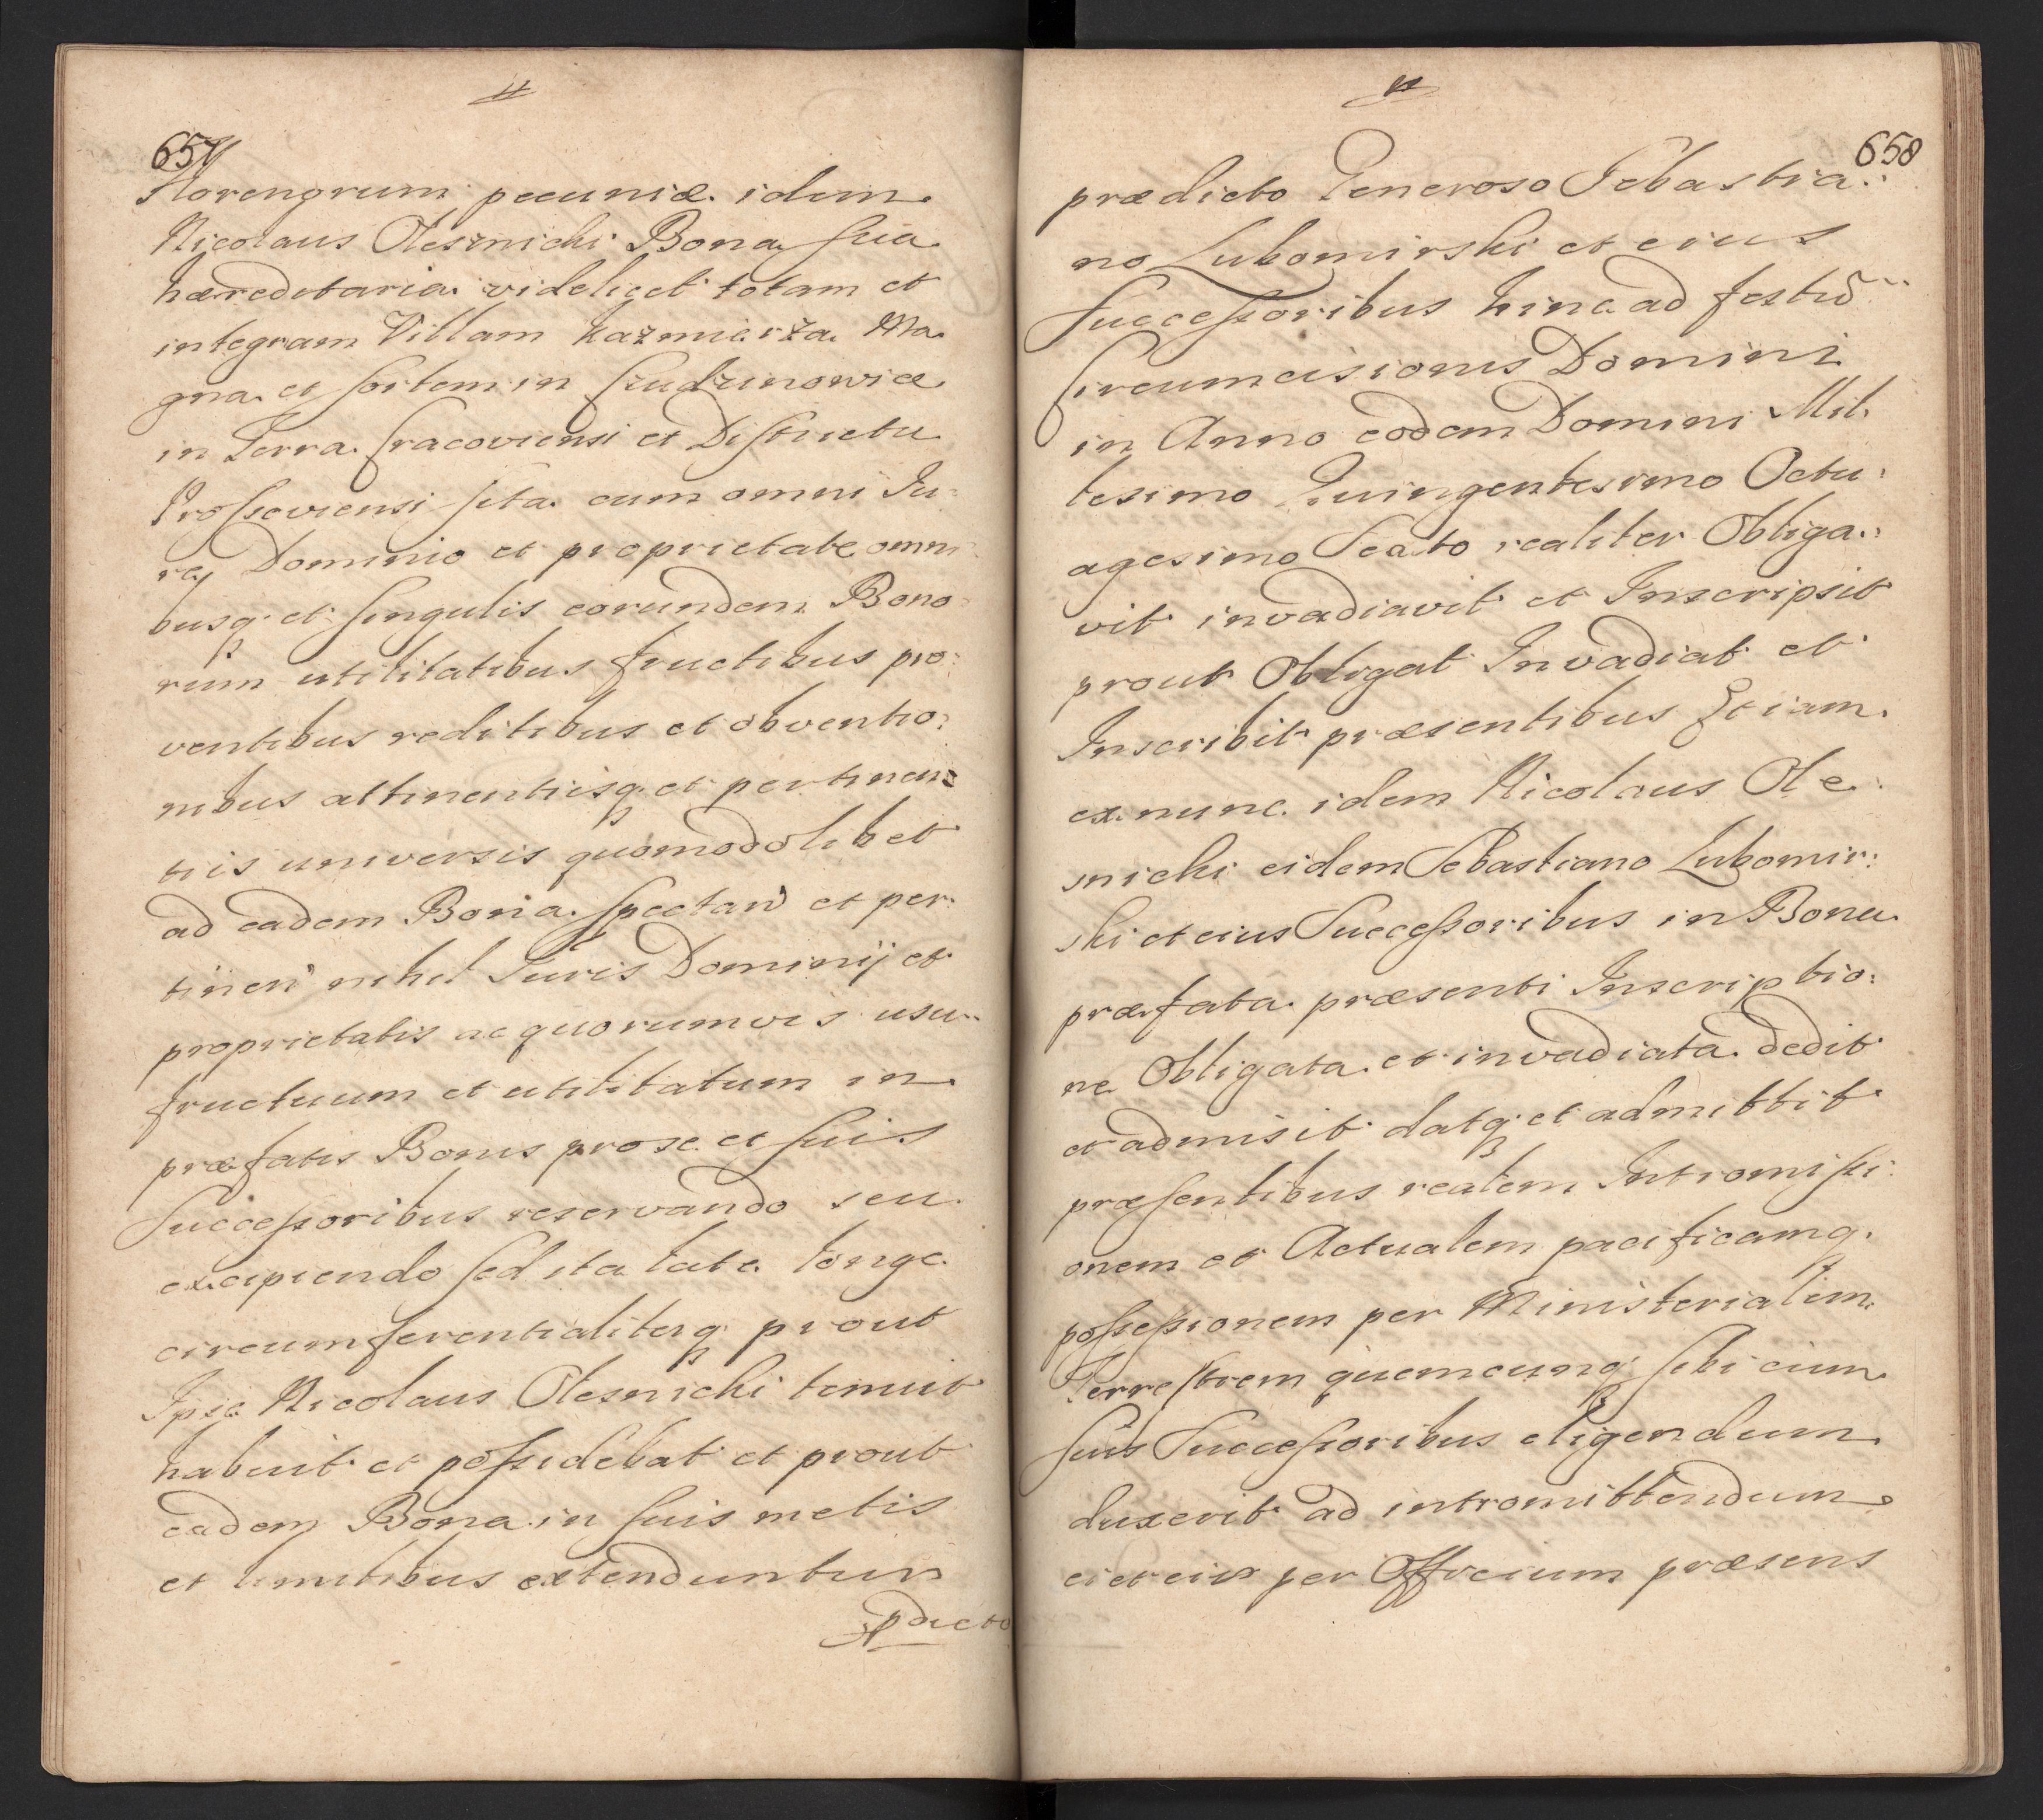 657
florengrum pecuniæ idem
Nicolaus Olesznicki Bona sua
hæreditaria videlicet totam et
integram Villam Kazmierza Ma
gna et sortem in Cudzinowice
in Terra Cracoviensi et Districtu
Prossoviensi sita cum omni Ju
re Dominio et proprietate omni
busq et singulis eorundem Bono
rum utilitatibus fructibus pro
ventibus reditibus et obventio
nibus attinentiisq et pertinen
tiis universis quomodolibet
ad eadem Bona spectan et per
tinen nihil Juris Dominij et
proprietatis ac quorumvis usu
fructuum et utilitatum in
præfatis Bonis pro se et suis
Successoribus reservando seu
excipiendo sed ita late longe
circumferentialiterq prout
Ipse Nicolaus Olesnicki tenuit
habuit et possidebat et prout
eadem Bona in suis metis
et limitibus extenduntur
pdicto
658
prædicto Generoso Sebastia
no Lubomirski et eius
Successoribus hinc ad festū
Circumcisionis Domini
in Anno eodem Domini Mil
lesimo Quingentesimo Octu
agesimo Sexto realiter Obliga
vit invadiavit et Inscripsit
prout Obligat Invadiat et
Inscribit præsentibus Etiam
ex nunc idem Nicolaus Ole
snicki eidem Sebastiano Lubomir
ski et eius Successoribus in Bona
præfata præsenti Inscriptio
ne Obligata et invadiata dedit
et admisit datq et admittit
præsentibus realem Intromissi
onem et Actualem pacificamq
possessionem per Ministerialem
Terrestrem quemcunq sibi cum
suis Successoribus eligendum
duxerit ad intromittendum
ei et eis per Officium præsens